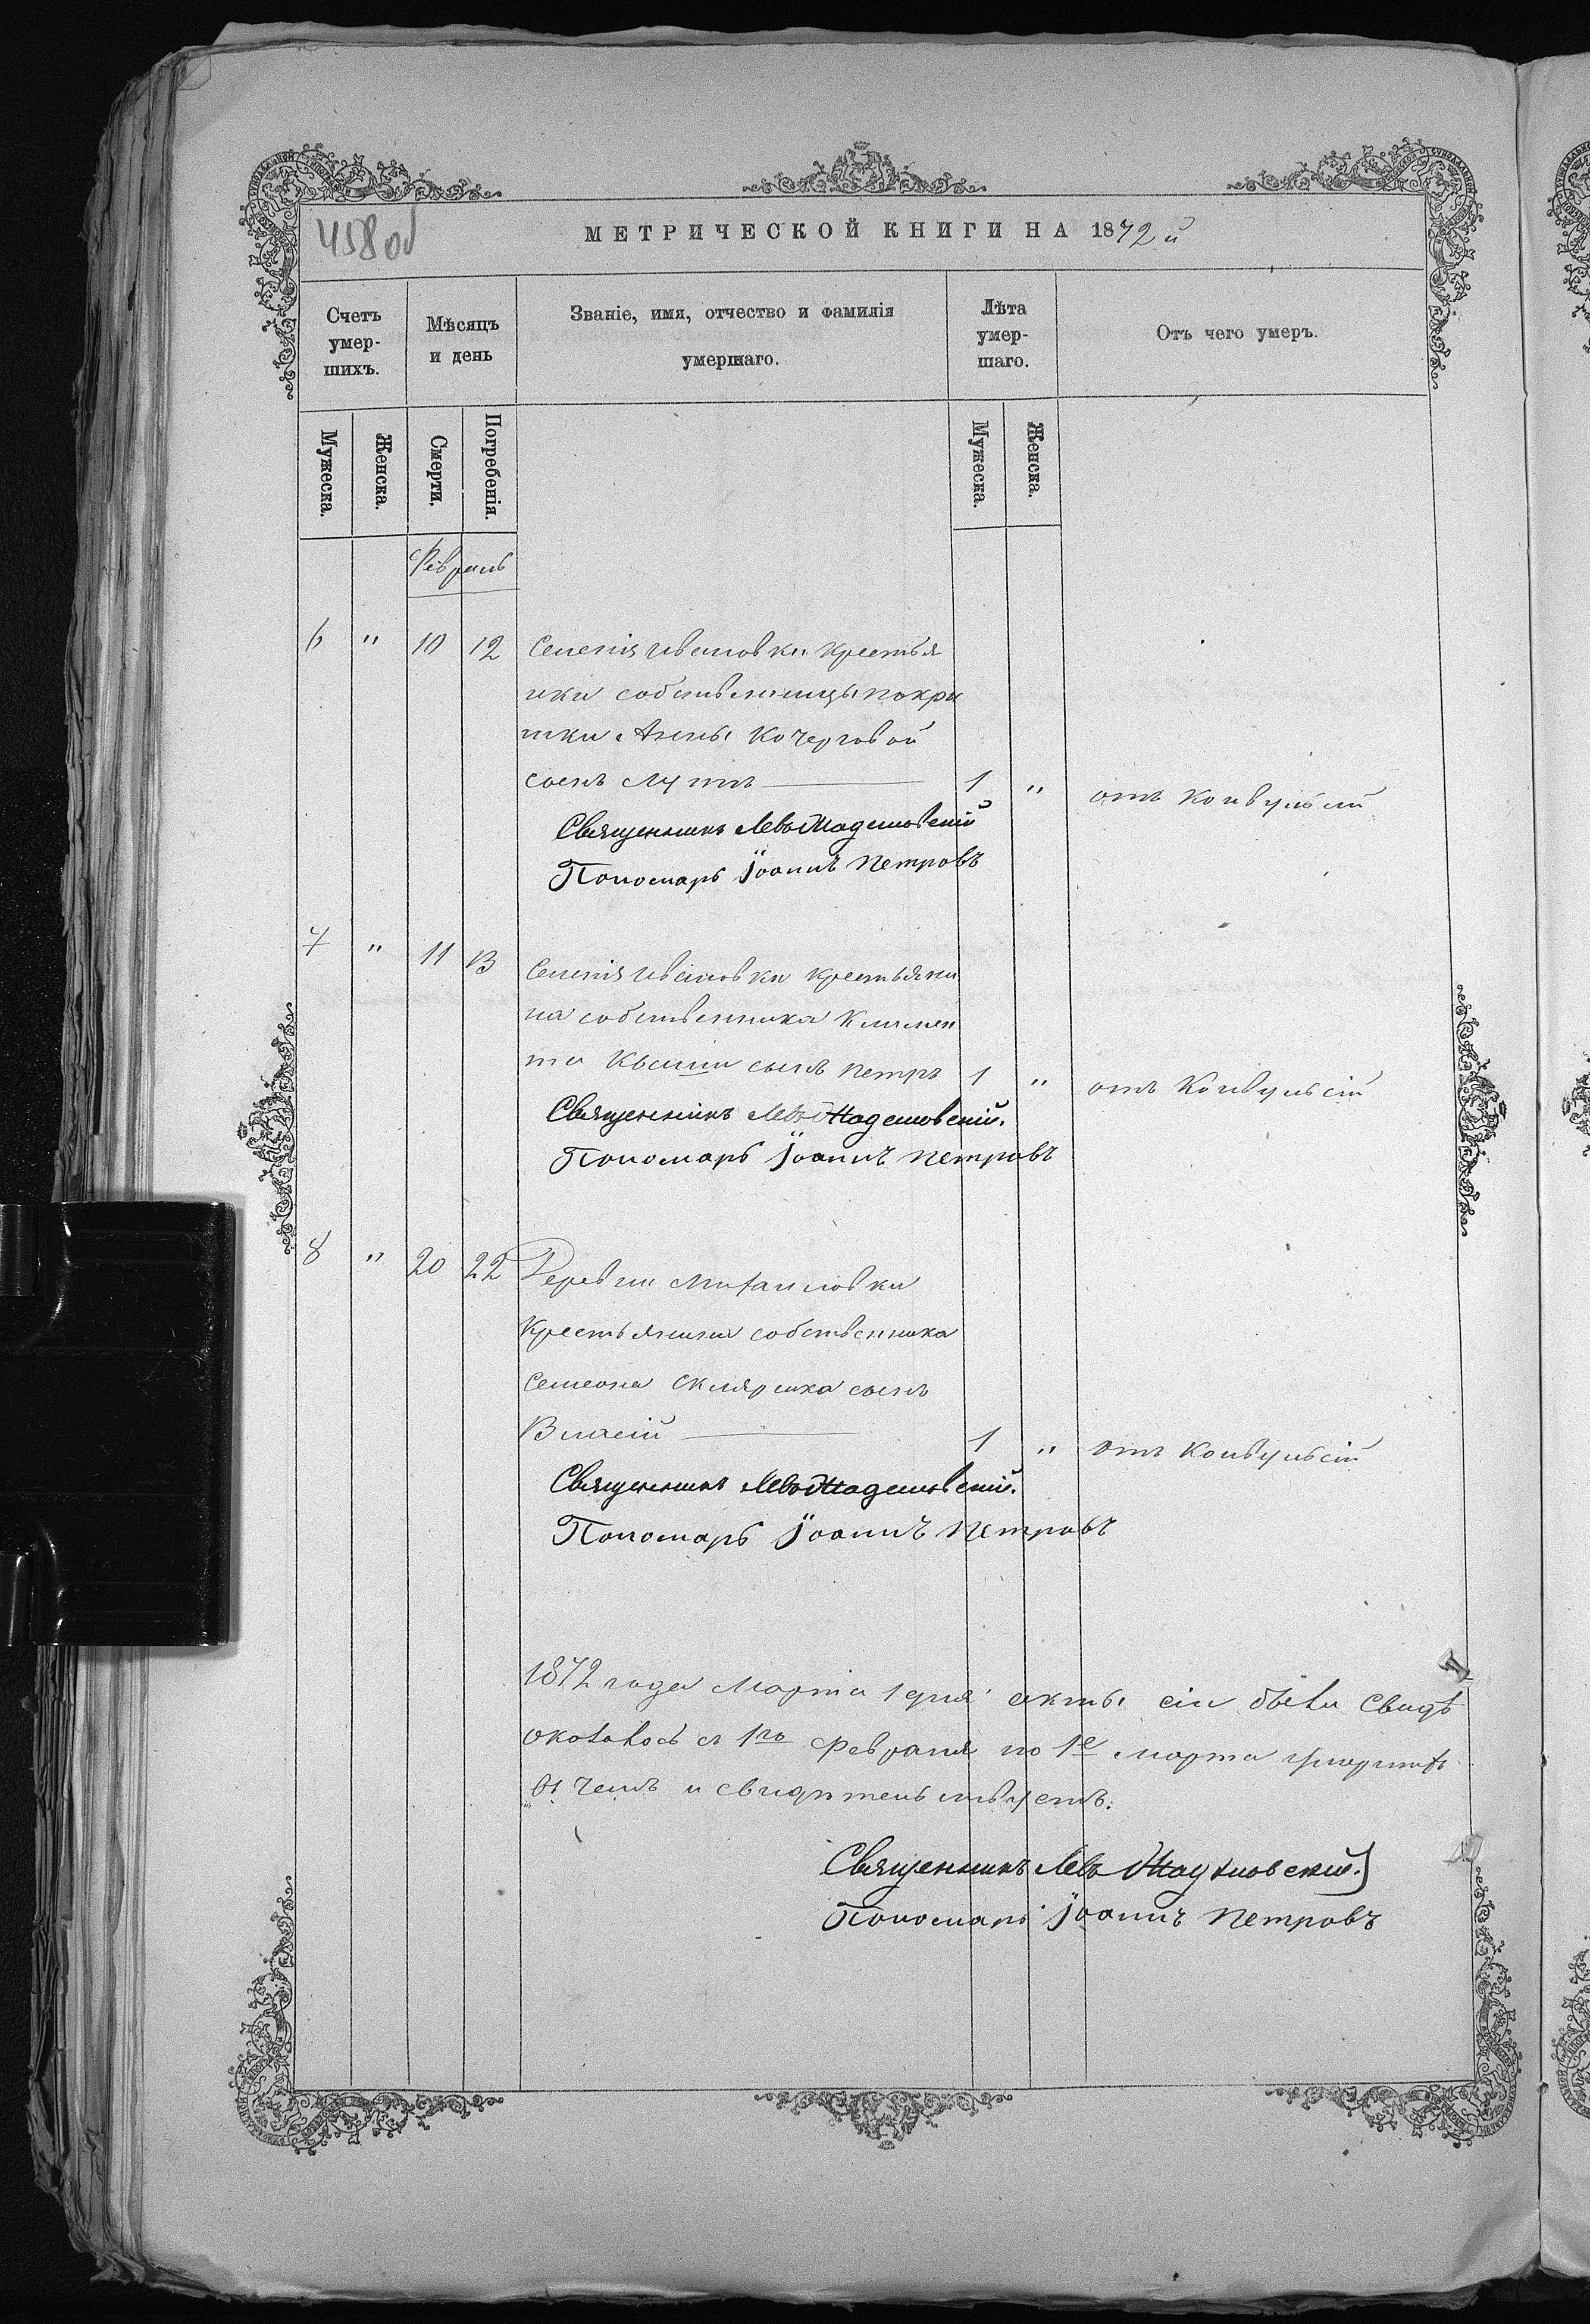 458 об
МЕТРИЧЕСКОЙ КНИГИ НА 1872 й
Счетъ умер-шихъ.
Мѣсяцъ и день
Званіе, имя, отчество и фамилія умершаго.
Лѣта умер-шаго.
Отъ чего умеръ.
Мужеска.
Женска.
Смерти.
Погребенія.
Мужеска.
Женска.
Февраль
6 " 10 12 Селенія Ивановки крестья
нки собственницы покры
тки Анны Кочерговой
сынъ Лупъ 1 " отъ Конвульсій
Священникъ Левъ
Пономарь Іоаннъ Петровъ
7 " 11 13 Селенія Ивановки крестьяни
на собственника Климен
та Кваши сынъ Петръ 1 " отъ Конвульсій
Священникъ Левъ
Пономарь Іоаннъ Петровъ
8 " 20 22 Деревни Михаиловки
крестьянина собственника
Семеона Скляринка сынъ
Власій 1 " отъ Конвульсій
Священникъ Левъ
Пономарь Іоаннъ Петровъ
1872 года Марта 1 дня акты сіи были Свидѣ
оказалось съ 1го Февраля по 1е марта умершихъ
въ чемъ и свидѣтельствуемъ:
Священникъ Левъ
Пономарь Іоаннъ Петровъ